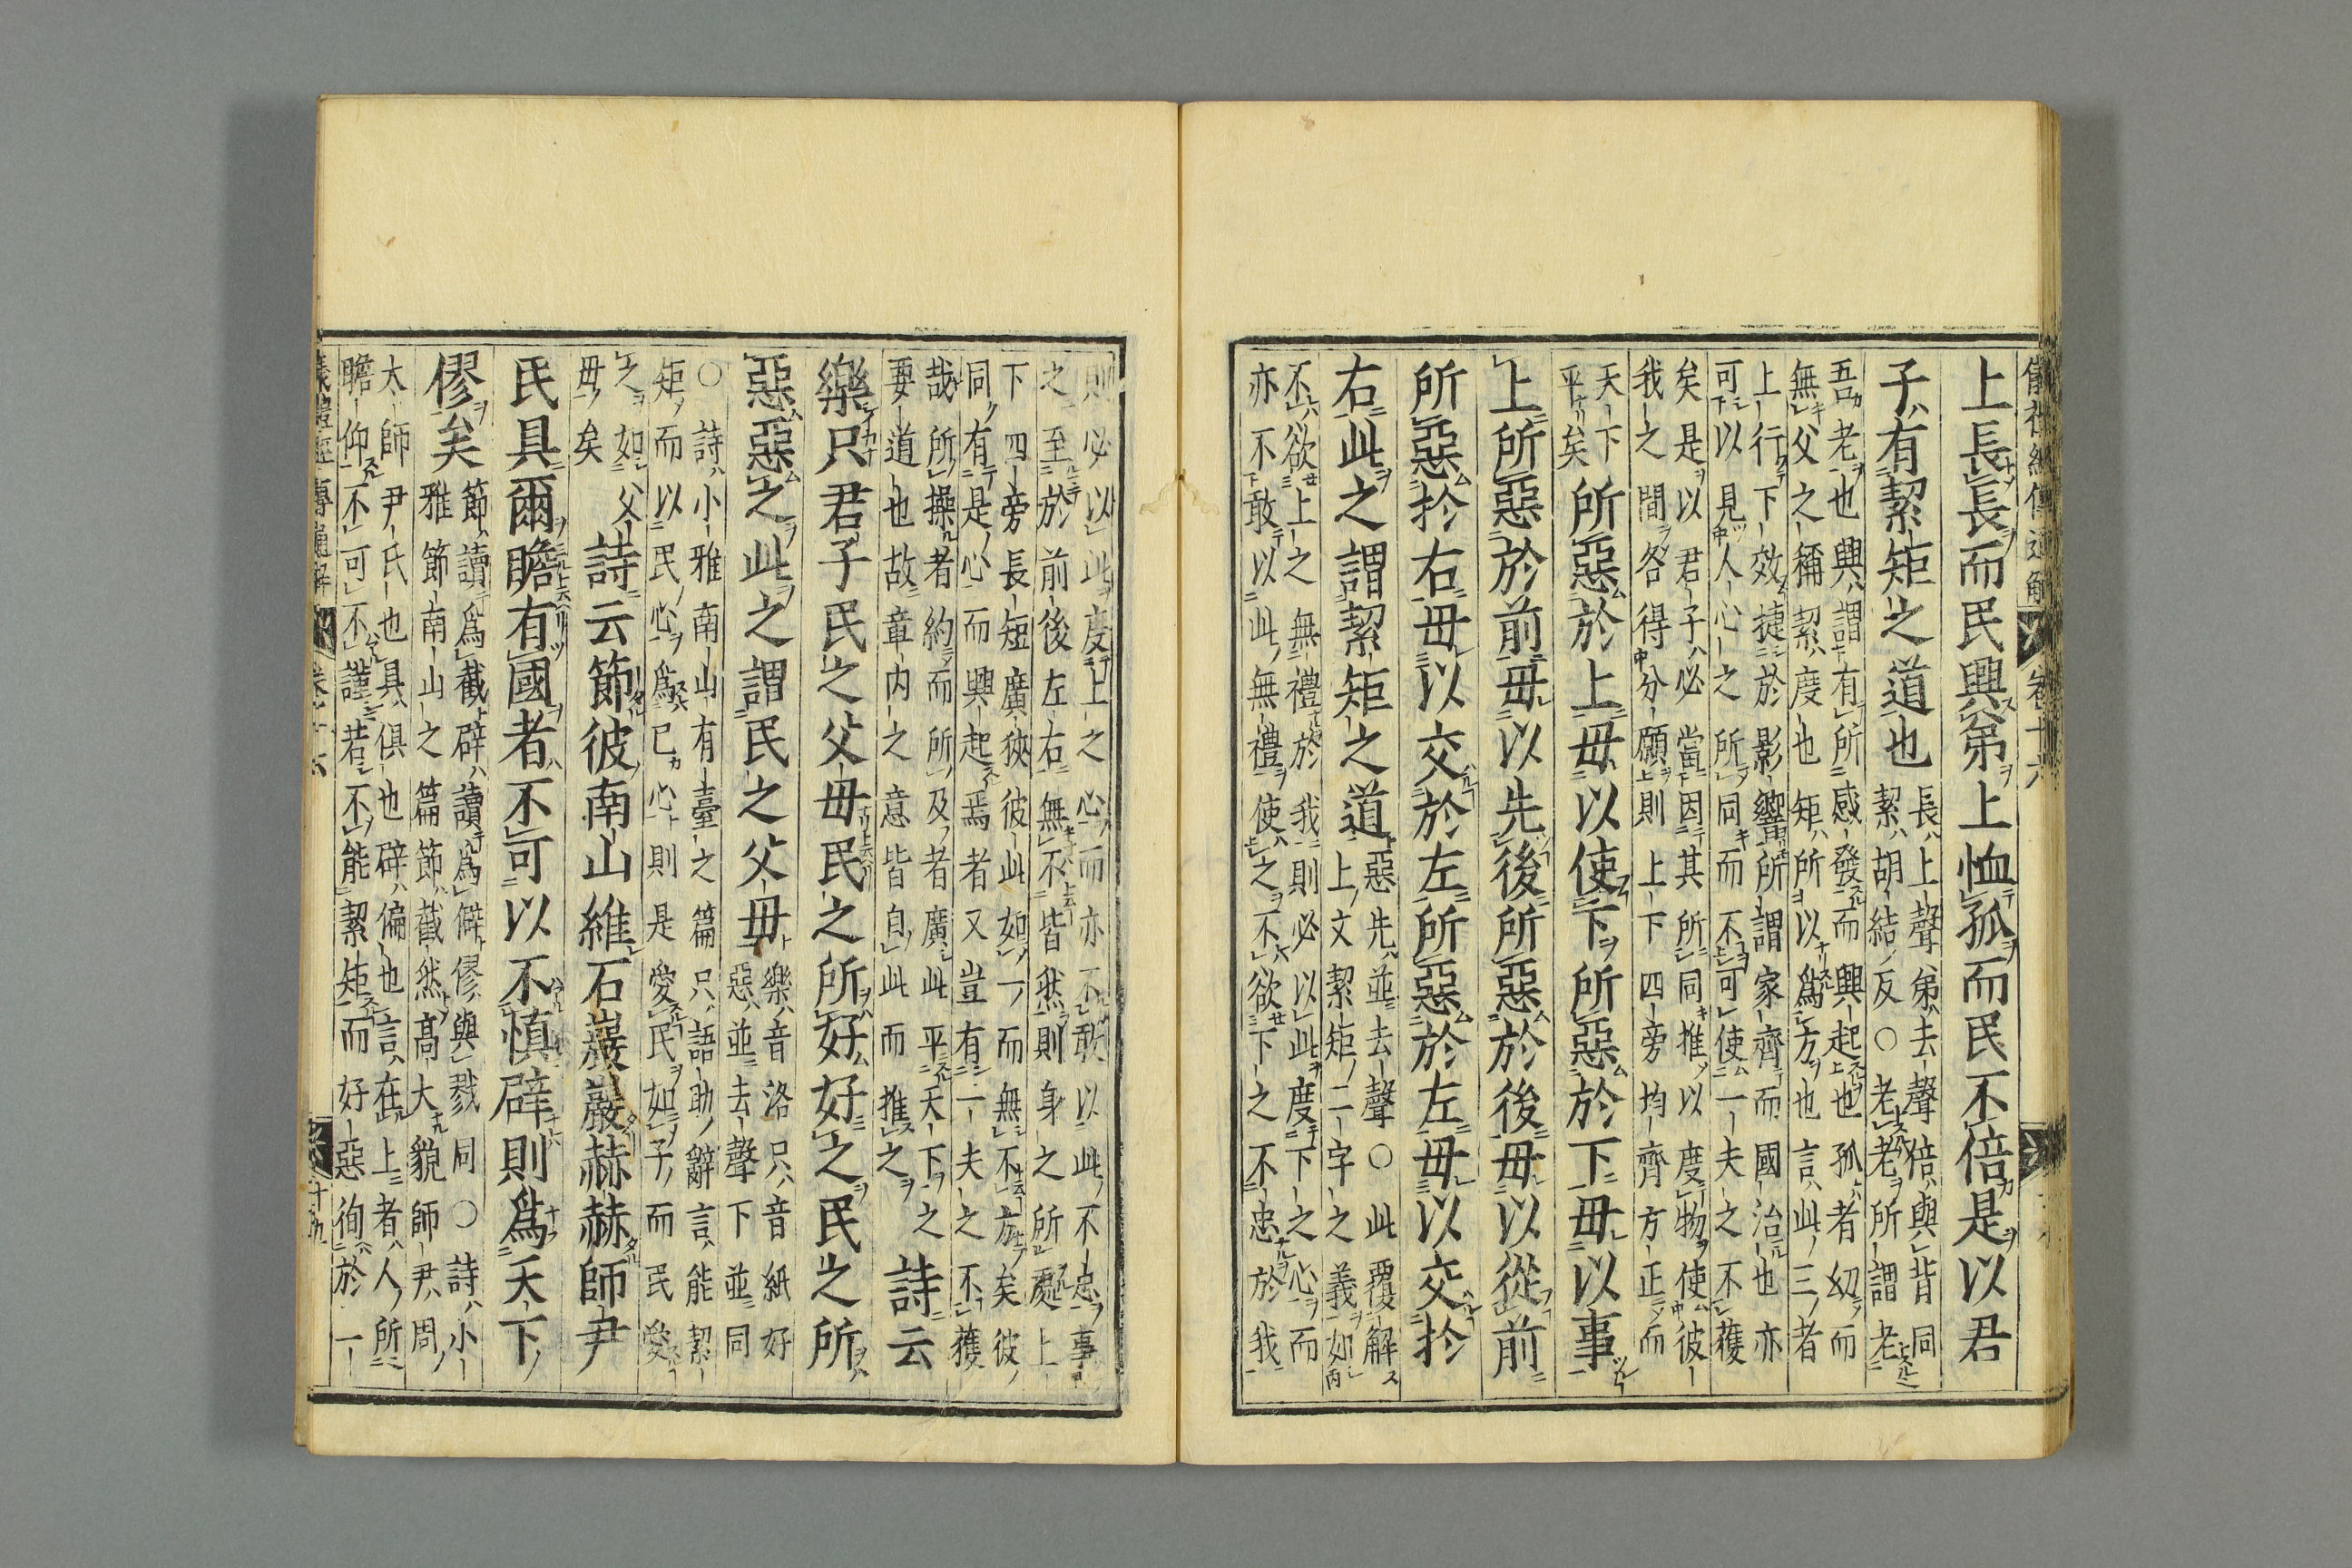 儀禮經傳通解 卷十六
上長長而民興弟上恤孤而民不倍是以君
子有絜矩之道也
長上聲弟去聲倍與背同
絜胡結反○老老所謂老
吾老也興謂有所感發而興起也孤者幼而
無父之稱絜度也矩所以爲方也言此三者
上行下效捷於影響所謂家齊而國治也亦
可以見人心之所同而不可使一夫之不獲
矣是以君子必當因其所同推以度物使彼
我之間各得分願則上下四旁均齊方正而
天下
平矣
所惡於上毋以使下所惡於下毋以事
上所惡於前毋以先後所惡於後毋以從前
所惡於右毋以交於左所惡於左毋以交於
右此之謂絜矩之道
惡先並去聲○此覆解
上文絜矩二字之義如
不欲上之無禮於我則必以此度下之心而
亦不敢以此無禮使之不欲下之不忠於我
則必以此度上之心而亦不敢以此不忠事
之至於前後左右無不皆然則身之所處上
下四旁長短廣狹彼此如一而無不方矣彼
同有是心而興起焉者又豈有一夫之不獲
哉所操者約而所及者廣此平天下之
要道也故章內之意皆自此而推之
詩云
樂只君子民之父母民之所好好之民之所
惡惡之此之謂民之父母
樂音洛只音紙好
惡並去聲下並同
○詩小雅南山有臺之篇只語助辭言能絜
矩而以民心爲己心則是愛民如子而民愛
之如父
母矣
詩云節彼南山維石巖巖赫赫師尹
民具爾瞻有國者不可以不慎辟則爲天下
僇矣
節讀爲截辟讀爲僻僇與戮同○詩小
雅節南山之篇節截然高大貌師尹周
太師尹氏也具俱也辟偏也言在上者人所
瞻仰不可不謹若不能絜矩而好惡徇於一
儀禮經傳通解 卷十六 十九